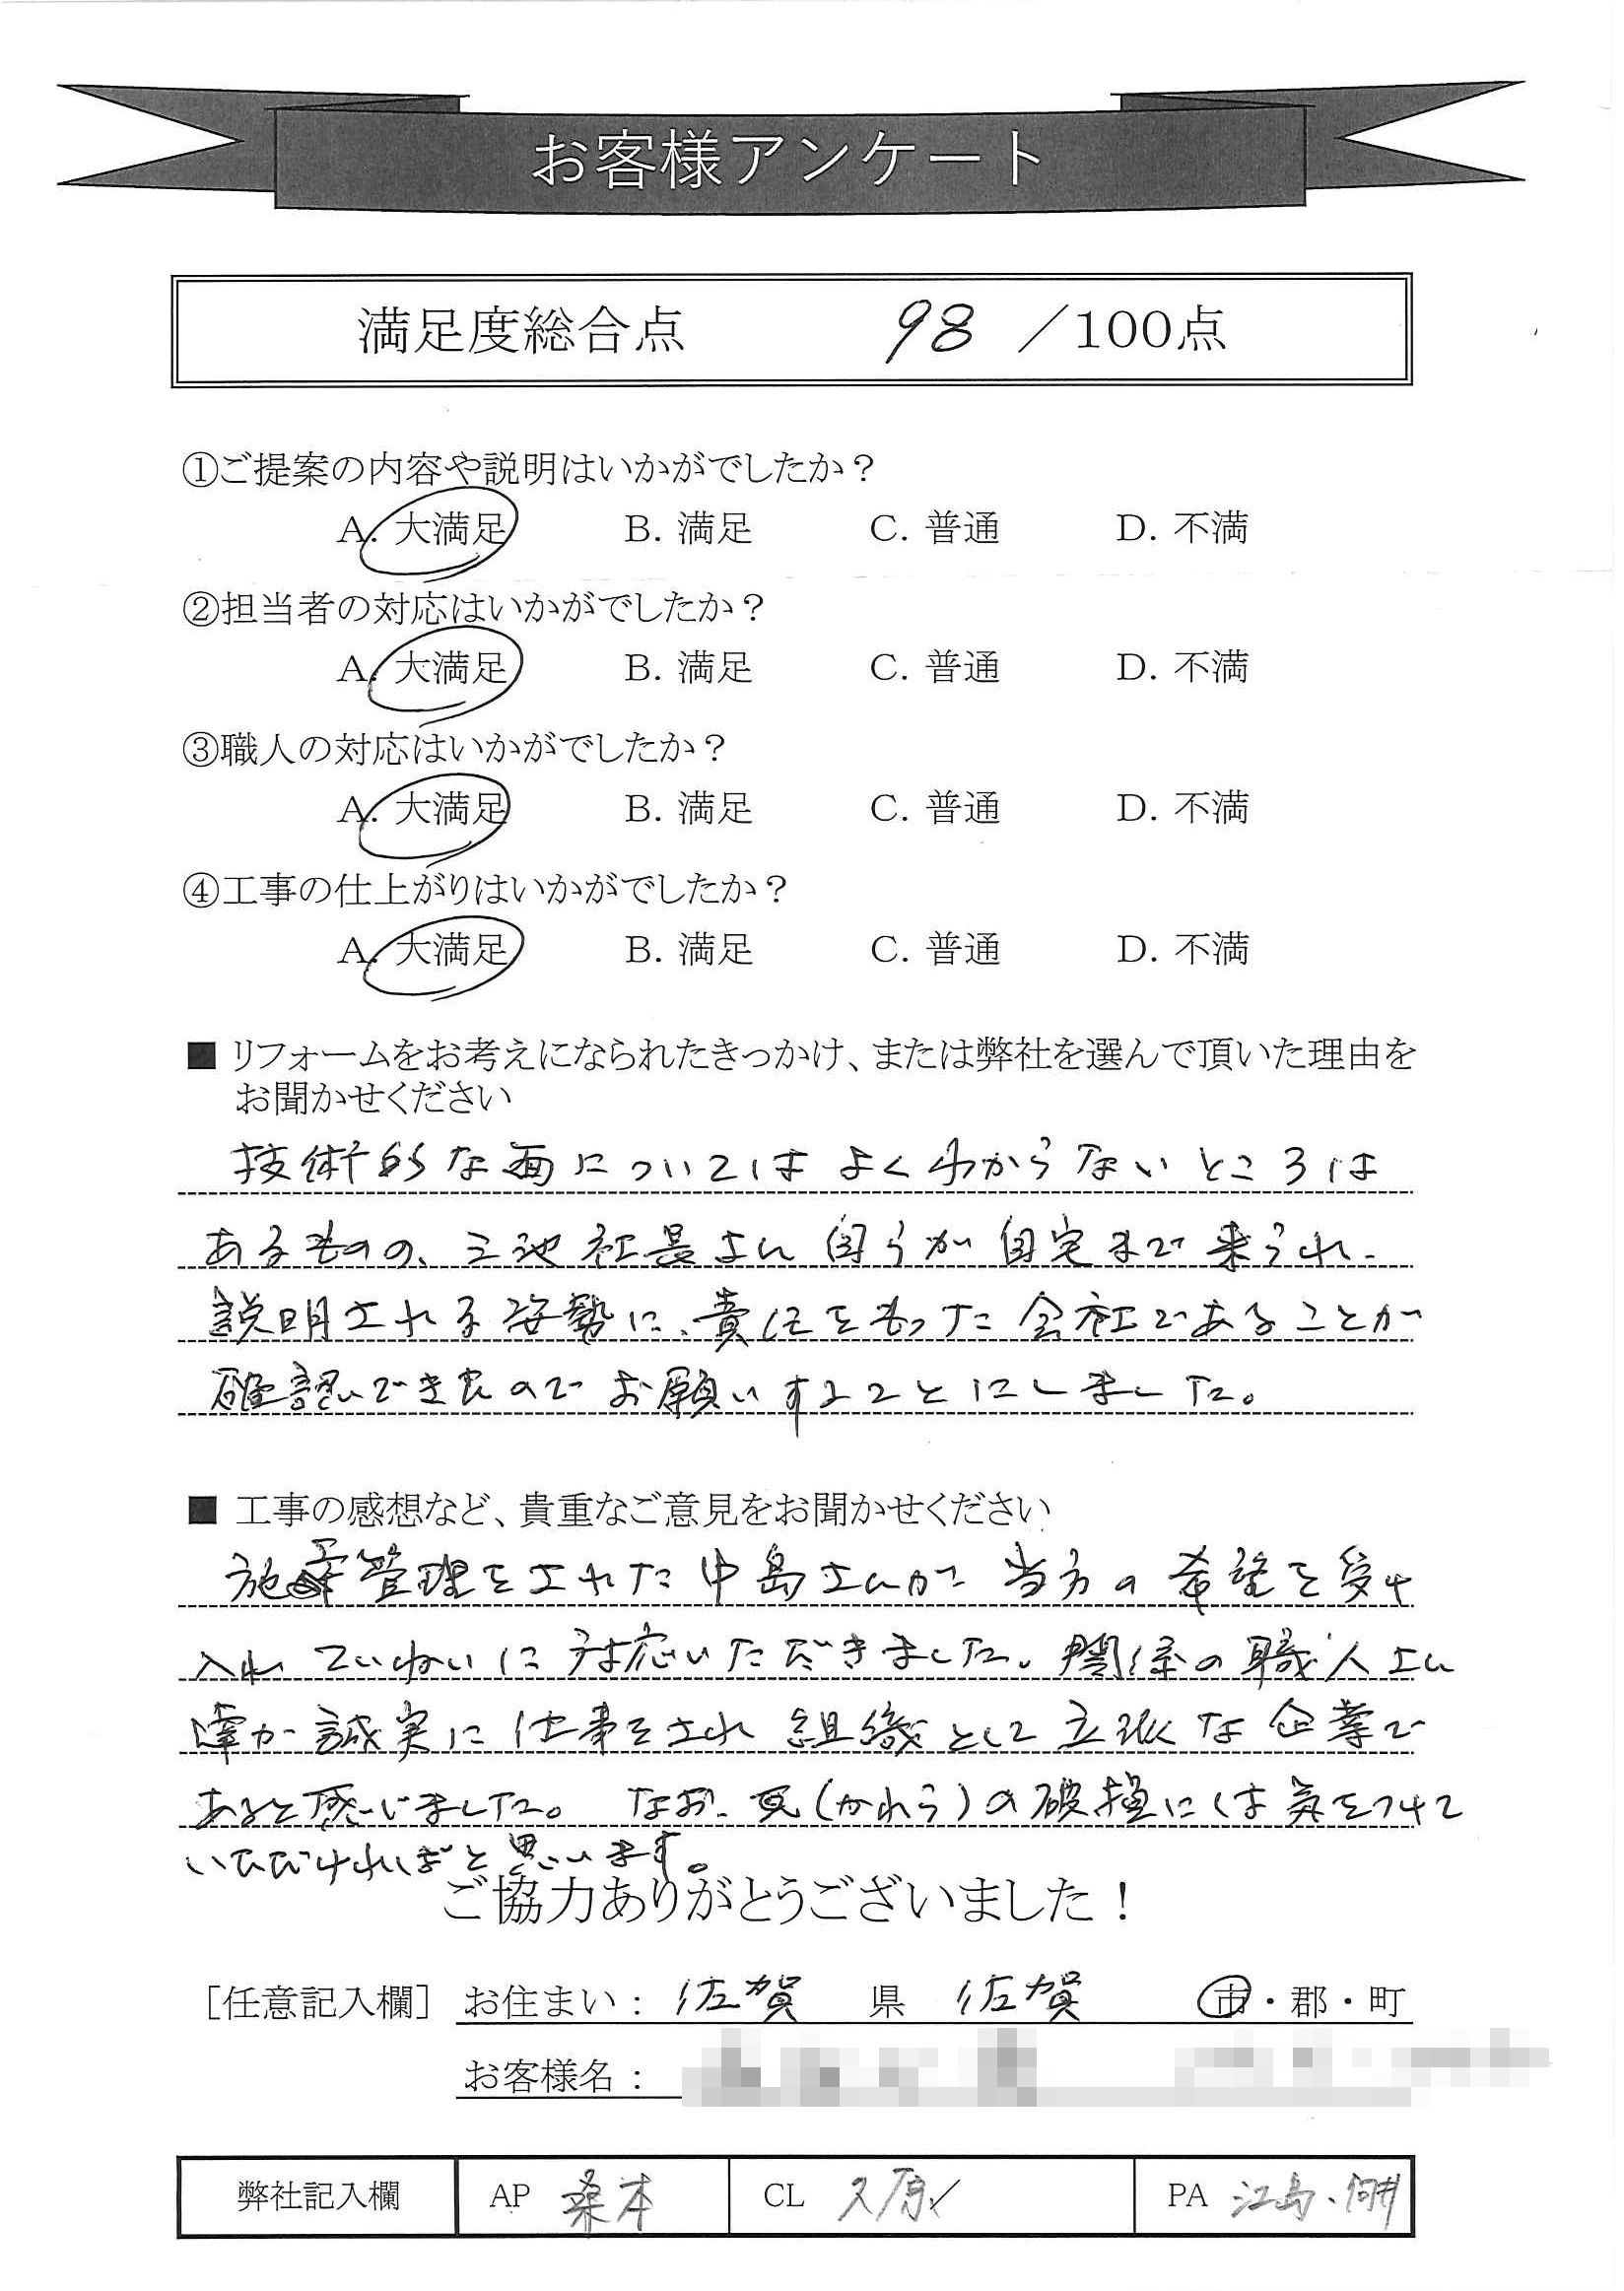 お客様アンケート
満足度総合点 98 ／100点
①ご提案の内容や説明はいかがでしたか？
A. 大満足 B. 満足 C. 普通 D. 不満
②担当者の対応はいかがでしたか？
A. 大満足 B. 満足 C. 普通 D. 不満
③職人の対応はいかがでしたか？
A. 大満足 B. 満足 C. 普通 D. 不満
④工事の仕上がりはいかがでしたか？
A. 大満足 B. 満足 C. 普通 D. 不満
■ リフォームをお考えになられたきっかけ、または弊社を選んで頂いた理由を
お聞かせください
技術的な面についてはよくわからないところは
あるものの、三池社長さん自らが自宅まで来られ、
説明される姿勢に、責任をもった会社であることが
確認できたのでお願いすることにしました。
■ 工事の感想など、貴重なご意見をお聞かせください
施工管理をされた中島さんが当方の希望を受け
入れていねいに対応いただきました。関係の職人さん
達が誠実に仕事をされ組織として立派な企業で
あると感じました。なお、瓦(かわら)の破損には気をつけて
いただければと思います。
ご協力ありがとうございました！
［任意記入欄］ お住まい： 佐賀 県 佐賀 市・郡・町
お客様名：
弊社記入欄 AP 桑本 CL 久原 PA 江島、向井